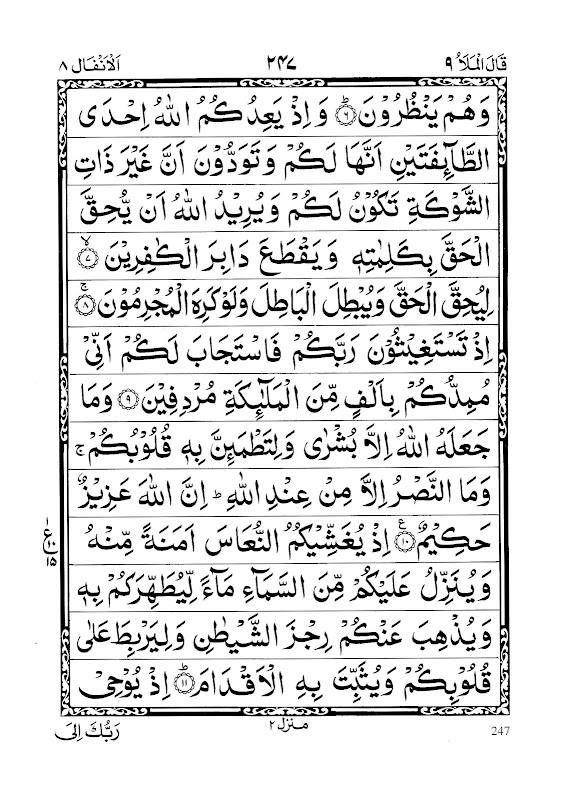 قَالَ الْمَلَاُ ۹ ۲۴۷ اَلْاَنْفَال ۸
وَهُمْ يَنْظُرُوْنَ ؕ﴿۶﴾ وَاِذْ يَعِدُكُمُ اللّٰهُ اِحْدَى
الطَّآئِفَتَيْنِ اَنَّهَا لَكُمْ وَتَوَدُّوْنَ اَنَّ غَيْرَ ذَاتِ
الشَّوْكَةِ تَكُوْنُ لَكُمْ وَيُرِيْدُ اللّٰهُ اَنْ يُّحِقَّ
الْحَقَّ بِكَلِمٰتِهٖ وَيَقْطَعَ دَابِرَ الْكٰفِرِيْنَ ۙ﴿۷﴾
لِيُحِقَّ الْحَقَّ وَيُبْطِلَ الْبَاطِلَ وَلَوْكَرِهَ الْمُجْرِمُوْنَ ۚ﴿۸﴾
اِذْ تَسْتَغِيْثُوْنَ رَبَّكُمْ فَاسْتَجَابَ لَكُمْ اَنِّىْ
مُمِدُّكُمْ بِاَلْفٍ مِّنَ الْمَلٰٓئِكَةِ مُرْدِفِيْنَ ﴿۹﴾ وَمَا
جَعَلَهُ اللّٰهُ اِلَّا بُشْرٰى وَلِتَطْمَئِنَّ بِهٖ قُلُوْبُكُمْ ۚ
وَمَا النَّصْرُ اِلَّا مِنْ عِنْدِ اللّٰهِ ؕ اِنَّ اللّٰهَ عَزِيْزٌ
حَكِيْمٌ ﴿۱۰﴾ ع اِذْ يُغَشِّيْكُمُ النُّعَاسَ اَمَنَةً مِّنْهُ
وَيُنَزِّلُ عَلَيْكُمْ مِّنَ السَّمَآءِ مَآءً لِّيُطَهِّرَكُمْ بِهٖ
وَيُذْهِبَ عَنْكُمْ رِجْزَ الشَّيْطٰنِ وَلِيَرْبِطَ عَلٰى
قُلُوْبِكُمْ وَيُثَبِّتَ بِهِ الْاَقْدَامَ ؕ﴿۱۱﴾ اِذْ يُوْحِىْ
۱
ع ۱۰
۱۵
منزل ۲
رَبُّكَ اِلَى
247